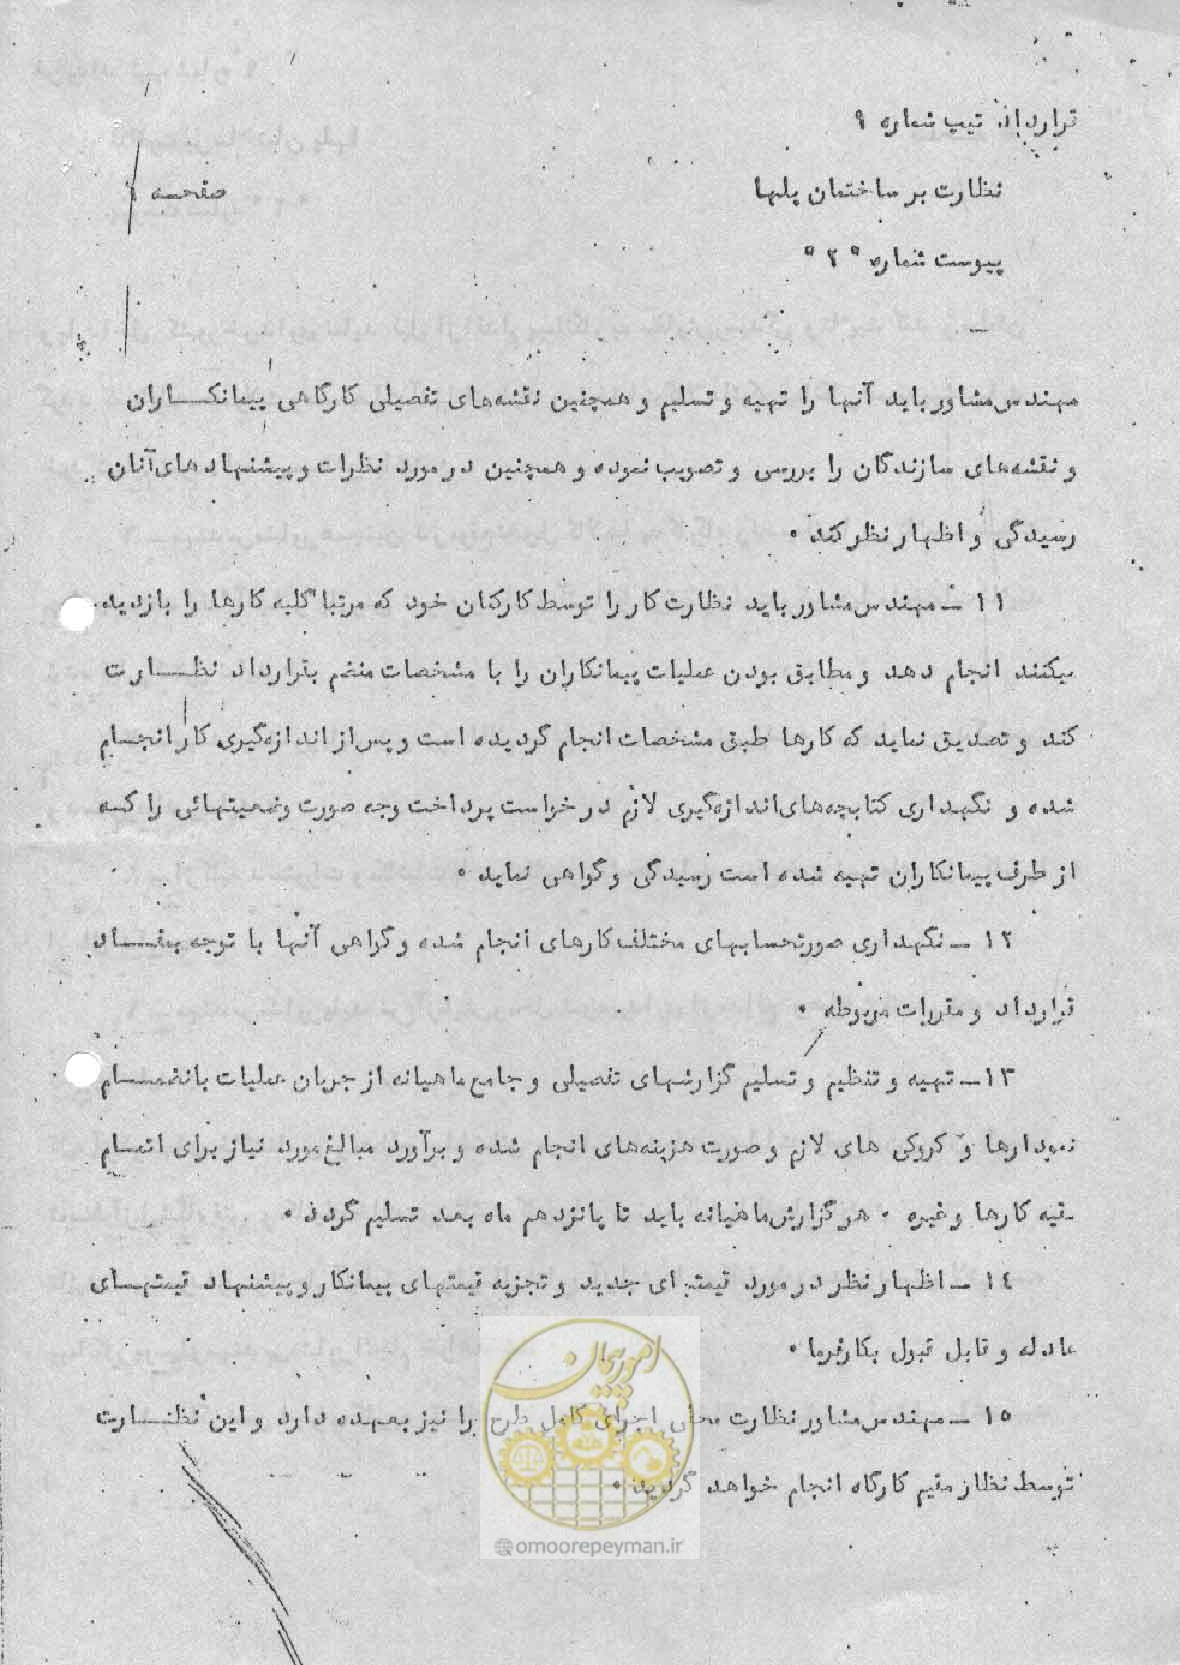 قرارداد تیپ شماره ۹
نظارت بر ساختمان پلها
صفحه
پیوست شماره "۲"
مهندس مشاور باید آنها را تهیه و تسلیم و همچنین نقشه‌های تفصیلی کارگاهی پیمانکاران
و نقشه‌های سازندگان را بررسی و تصویب نموده و همچنین در مورد نظرات و پیشنهادهای آنان
رسیدگی و اظهار نظر کند .
۱۱ ـ مهندس مشاور باید نظارت کار را توسط کارکنان خود که مرتبا کلیه کارها را بازدید
میکنند انجام دهد و مطابق بودن عملیات پیمانکاران را با مشخصات منضم بقرارداد نظارت
کند و تصدیق نماید که کارها طبق مشخصات انجام گردیده است و پس از اندازه‌گیری کار انجام
شده و نگهداری کتابچه‌های اندازه‌گیری لازم درخواست پرداخت وجه صورت وضعیتهائی را که
از طرف پیمانکاران تهیه شده است رسیدگی و گواهی نماید .
۱۲ ـ نگهداری صورتحسابهای مختلف کارهای انجام شده و گواهی آنها با توجه بمفاد
قرارداد و مقررات مربوطه .
۱۳ـ تهیه و تنظیم و تسلیم گزارشهای تفصیلی و جامع ماهیانه از جریان عملیات بانضمام
نمودارها و کروکی های لازم و صورت هزینه‌های انجام شده و برآورد مبالغ مورد نیاز برای اتمام
بقیه کارها و غیره . هر گزارش ماهیانه باید تا پانزدهم ماه بعد تسلیم گردد .
۱۴ ـ اظهار نظر در مورد قیمتهای جدید و تجزیه قیمتهای پیمانکار و پیشنهاد قیمتهای
عادله و قابل قبول بکارفرما .
۱۵ ـ مهندس مشاور نظارت محلی اجرای کامل طرح را نیز بعهده دارد و این نظارت
توسط نظار مقیم کارگاه انجام خواهد گردید .
امور پیمان
@omoorepeyman.ir